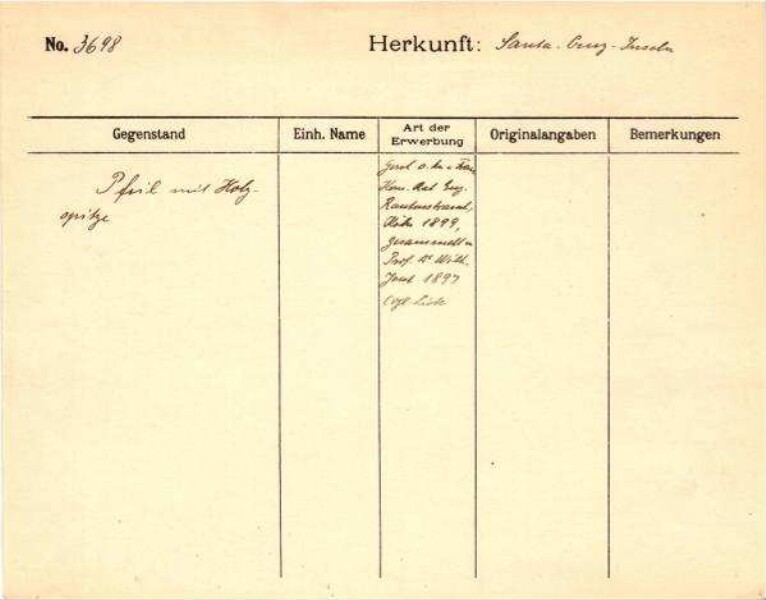 No. 3698 Herkunft: Santa-Cruz-Inseln
Gegenstand Einh. Name Art der Erwerbung Originalangaben Bemerkungen
Pfeil mit Holz-
spitze
Gesch. v. Hr. u Frau
Kom. Rat Eug.
Rautenstrauch,
Köln 1899,
gesammelt v.
Prof. Dr Wilh.
Joest 1897
(vgl. Liste